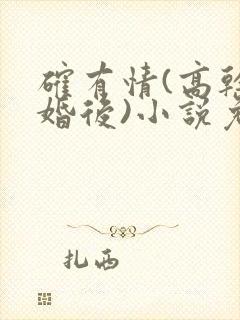 確有情(高幹
婚後)小說
扎西